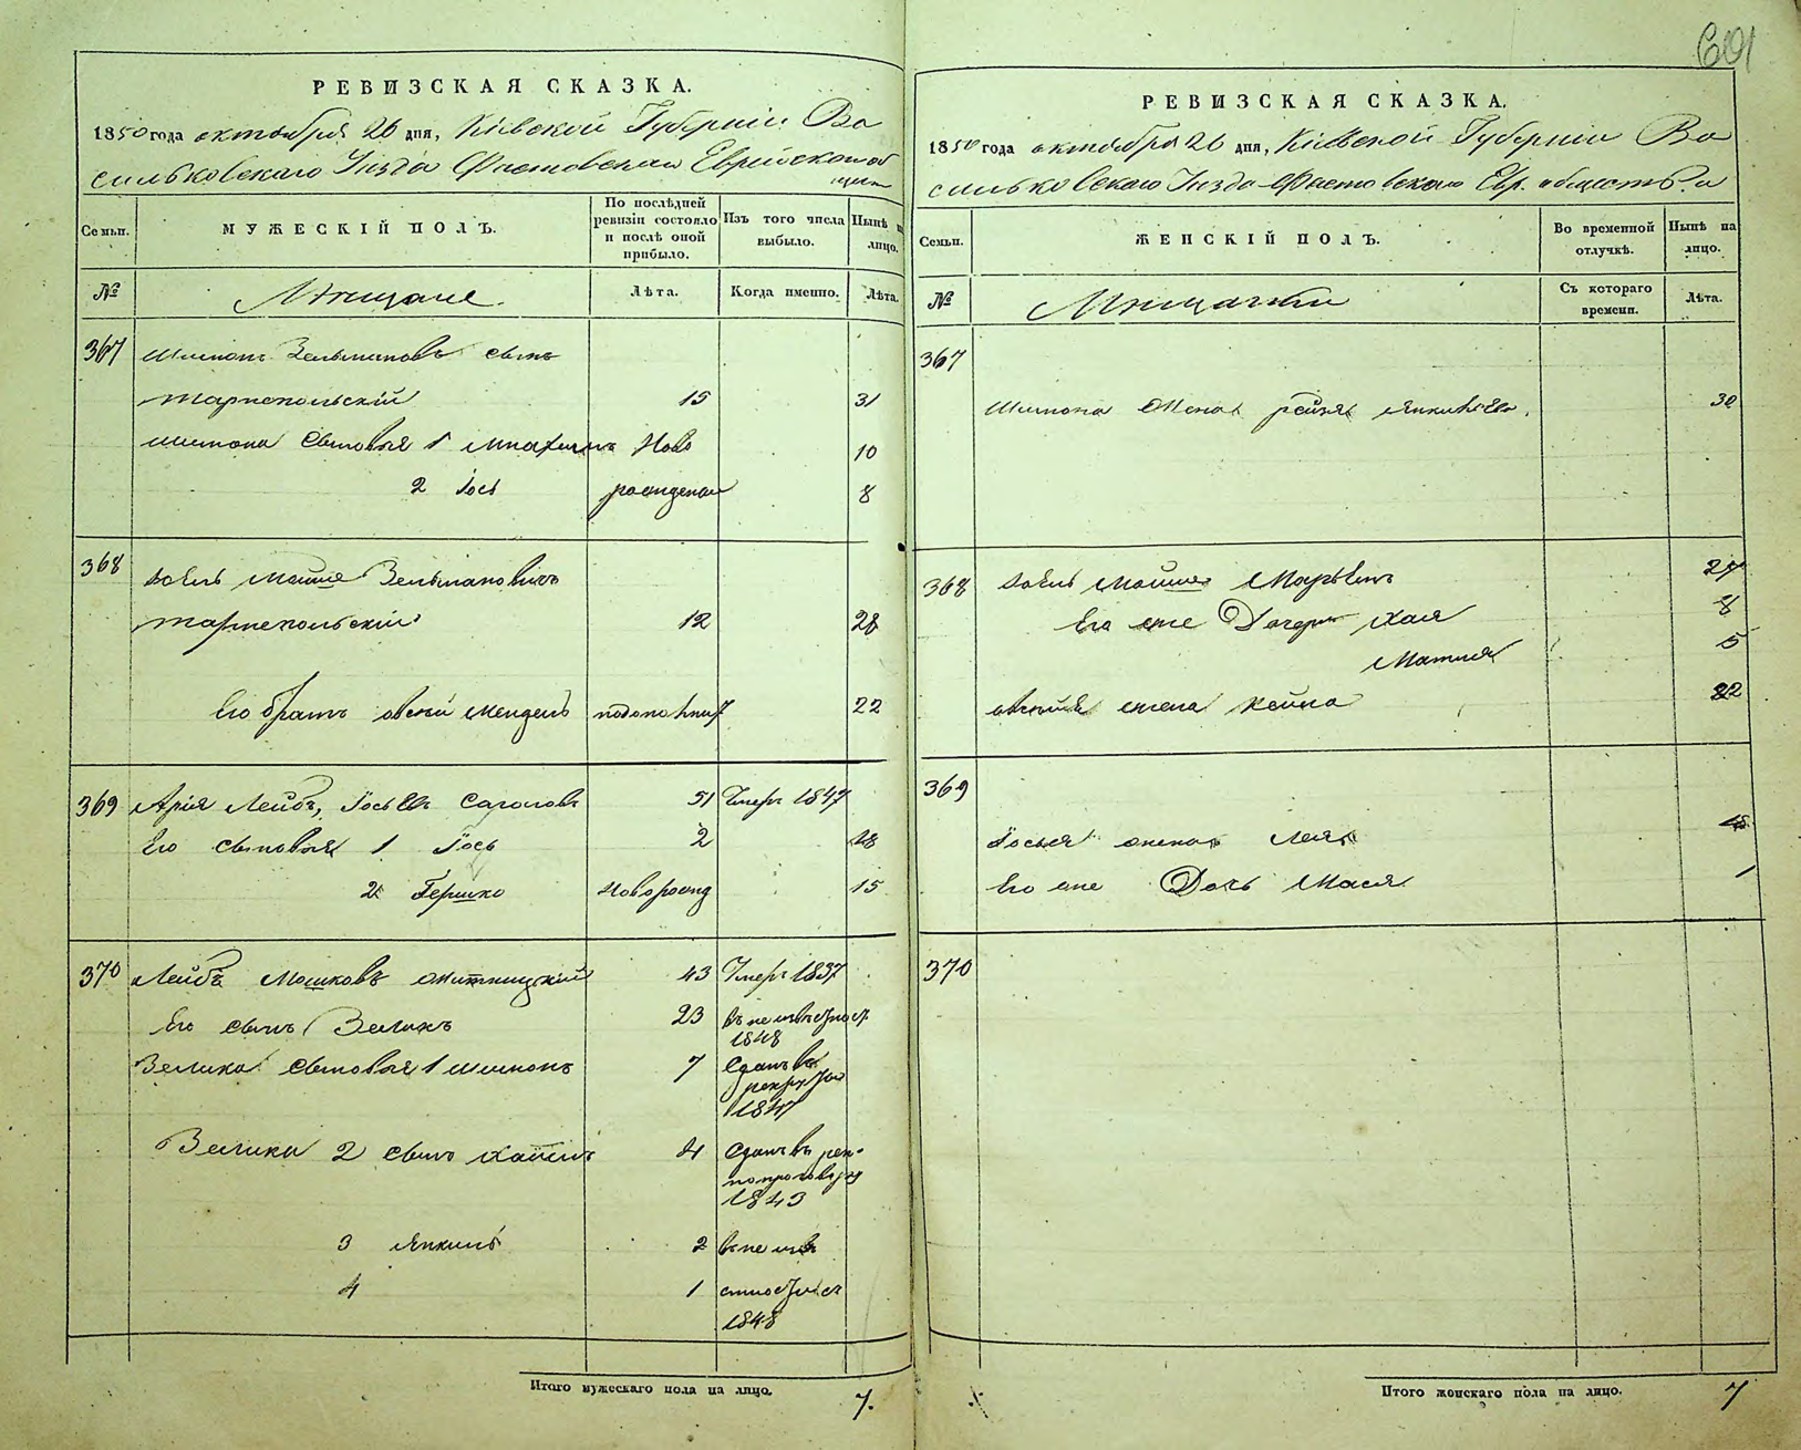 601
РЕВИЗСКАЯ СКАЗКА.
1850 года октября 26 дня, Кіевской Губерніи Ва
сильковскаго Уезда Фастовскаго Еврейскаго об
щест
Семьи.
МУЖЕСКІЙ ПОЛЪ.
По послѣдней ревизіи состояло и послѣ оной прибыло.
Изъ того числа выбыло.
Нынѣ на лицо.
№
Мещане.
Лѣта.
Когда именно.
Лѣта.
367 Шимонъ Зельмановъ сынъ
Тарнопольскій 15 31
Шимона сыновья 1 Мнахимъ Ново 10
2 Іось рожденный 8
368 Мошко Зельмановичъ
Тарнопольскій 12 28
Его братъ Овсей Мендель 22
369 Арія Лейбъ, Іосьевъ 51 Умеръ 1847
Его сыновья 1 Іось 2 18
2 Гершко Поворожд 15
370 Лейба Мошковъ Житницкій 43 Умеръ 1837
Его сынъ Зеликъ 23 въ неизвѣстност
1848
Зелика сыновья 1 Шимонъ 7 Сданъ въ
рекруты
1847
Зелика 2 сынъ Хаимъ 4 Сданъ въ рек
1843
3 Янкель 2 въ неизв
4 1 стности съ
1848
Итого мужескаго пола на лицо. 7.
РЕВИЗСКАЯ СКАЗКА.
1850 года октября 26 дня, Кіевской Губерніи Ва
сильковскаго Уезда Фастовскаго Евр. общества
Семьи.
ЖЕНСКІЙ ПОЛЪ.
Во временной отлучкѣ.
Нынѣ на лицо.
№
Мещанки
Съ котораго времени.
Лѣта.
367
Шимона жена Рейзя Янкелева. 30
368 27
Его же Дочери Хая 8
Матля 5
жена Хейна 22
369
Іоселя жена Лея 18
Его же Дочь Мася 1
370
Итого женскаго пола на лицо. 7